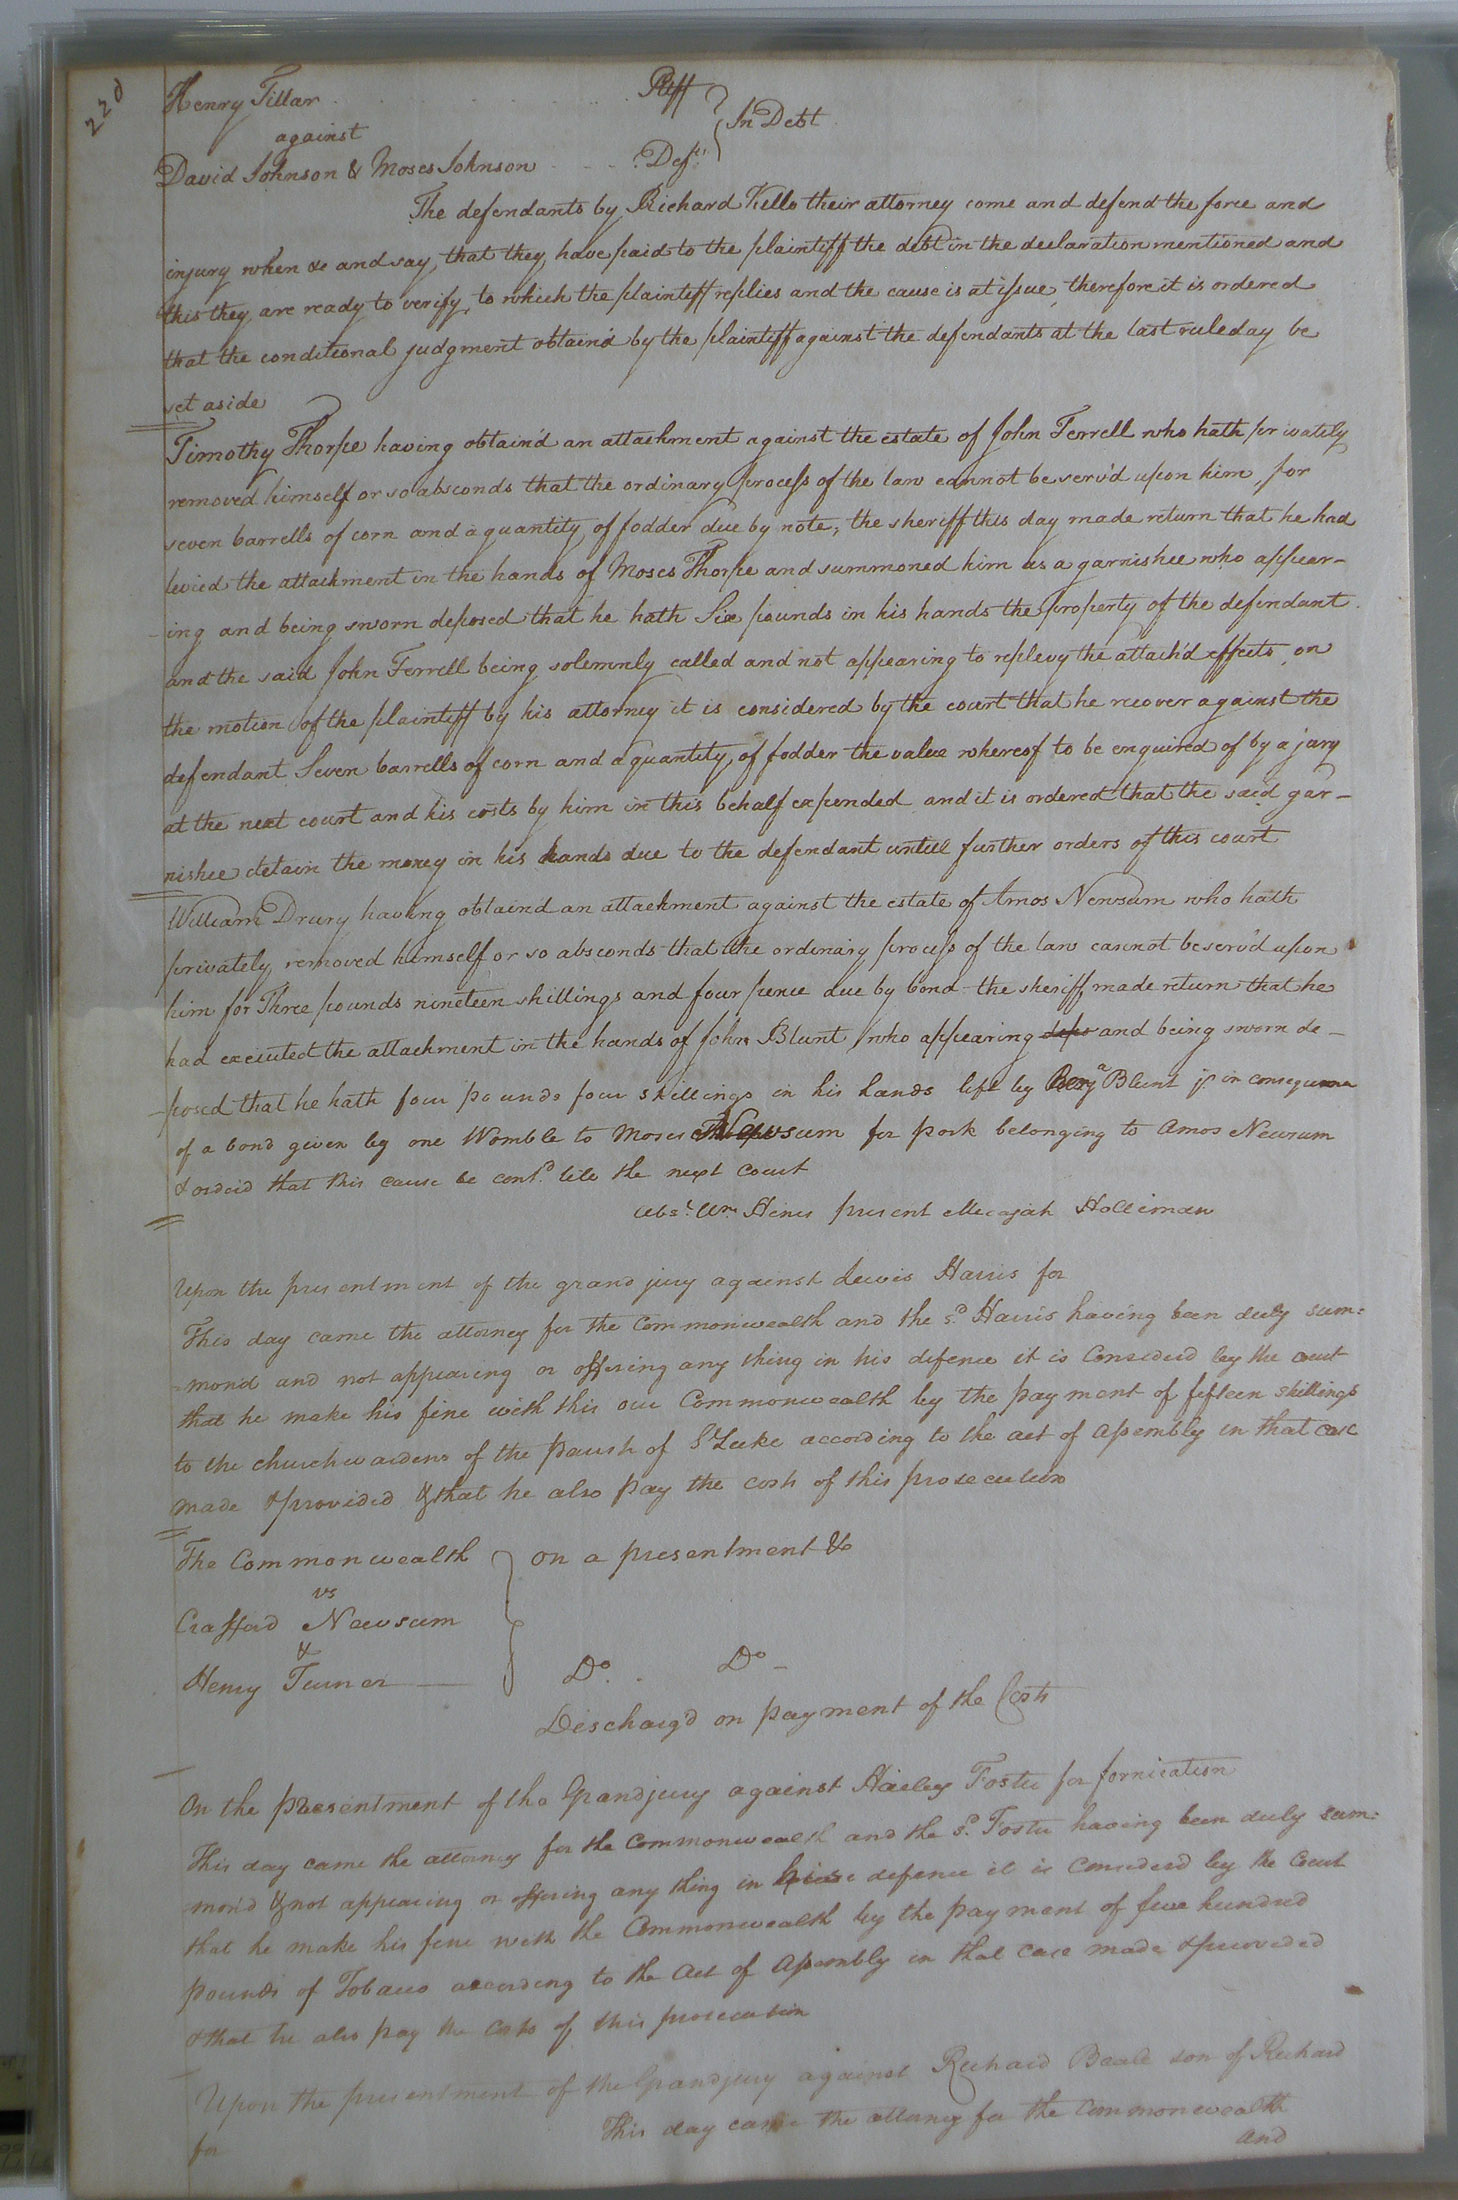 220
Henry Tillar . . . . . . . . . . Pltff
against
In Debt
David Johnson & Moses Johnson . . . . Defts
The defendants by Richard Kello their attorney come and defend the force and
injury when &c and say, that they have paid to the plaintiff the debt in the declaration mentioned and
this they are ready to verify, to which the plaintiff replies and the cause is at issue, therefore it is ordered
that the conditional judgment obtain'd by the plaintiff against the defendants at the last rule day be
set aside
Timothy Thorpe having obtain'd an attachment against the estate of John Ferrell who hath privately
removed himself or so absconds that the ordinary process of the law cannot be serv'd upon him, for
seven barrells of corn and a quantity of fodder due by note, the sheriff this day made return that he had
levied the attachment in the hands of Moses Thorpe and summoned him as a garnishee who appear-
-ing and being sworn deposed that he hath Six pounds in his hands the property of the defendant
and the said John Ferrell being solemnly called and not appearing to replevy the attach'd effects, on
the motion of the plaintiff by his attorney it is considered by the court that he recover against the
defendant Seven barrells of corn and a quantity of fodder the value whereof to be enquired of by a jury
at the next court and his costs by him in this behalf expended and it is ordered that the said gar-
nishee detain the money in his hands due to the defendant untill further orders of this court
William Drury having obtaind an attachment against the estate of Amos Newsum who hath
privately removed himself or so absconds that the ordinary process of the law cannot be serv'd upon
him for Three pounds nineteen shillings and four pence due by bond the sheriff made return that he
had executed the attachment in the hands of John Blunt who appearing depo and being sworn de-
-posed that he hath four pounds four shillings in his hands left by Benja Blunt jr in consequence
of a bond given by one Womble to Moses Newsum for pork belonging to Amos Newsum
& orderd that this cause be contd till the next Court
Abst Wm Hines present Mecajah Holliman
Upon the presentment of the grand jury against Lewis Harris for
This day came the attorney for the Commonwealth and the sd Harris having been duly sum=
=mond and not appearing or offering any thing in his defence it is Considerd by the court
that he make his fine with this our Commonwealth by the payment of fifteen shillings
to the churchwardens of the parish of St Luke according to the act of assembly in that case
made & provided & that he also pay the costs of this prosecution
The Commonwealth
on a presentment &c
vs
Crafford Newsum
&
Henry Turner —— Do. Do -
Discharg'd on payment of the Costs
On the presentment of the Grandjury against Hailey Foster for fornication
This day came the attorney for the Commonwealth and the sd. Foster having been duly sum=
mon'd & not appearing or offering any thing in his defence it is Considerd by the Court
that he make his fine with the Commonwealth by the payment of five hundred
pounds of Tobacco according to the Act of Assembly in that case made & provided
& that he also pay the Costs of this prosecution
Upon the presentment of the Grandjury against Richard Beale son of Richard
for
This day came the attorney for the Commonwealth
and